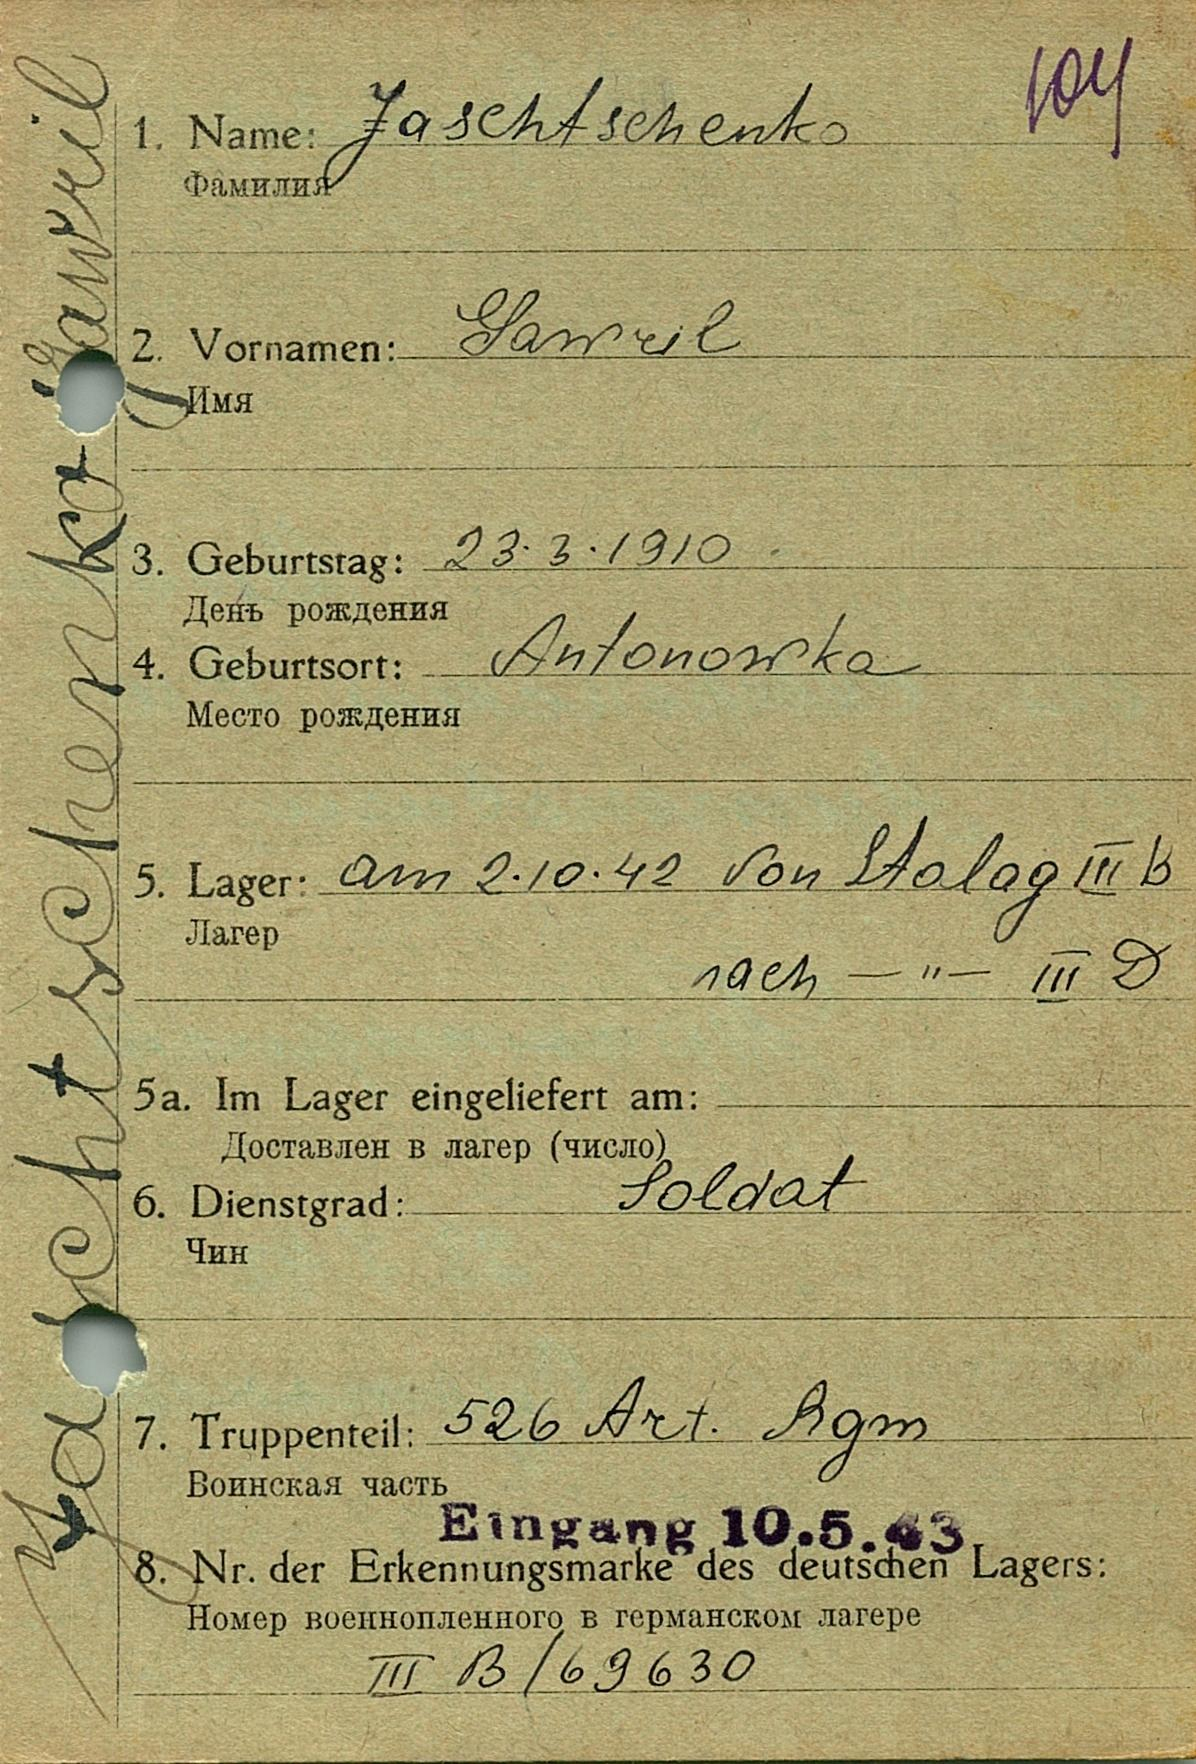 104
1. Name: Jaschtschenko
Фамилия
2. Vornamen: Gawril
Имя
3. Geburtstag: 23.3.1910
День рождения
4. Geburtsort: Antonowka
Место рождения
5. Lager: am 2.10.42 von Stalag III B
Лагер
nach — " — III D
5a. Im Lager eingeliefert am:
Доставлен в лагер (число)
6. Dienstgrad: Soldat
Чин
7. Truppenteil: 526 Art. Rgm
Воинская часть
Eingang 10.5.43
8. Nr. der Erkennungsmarke des deutschen Lagers:
Номер военнопленного в германском лагере
III B/69630
Jaschtschenko Gawril